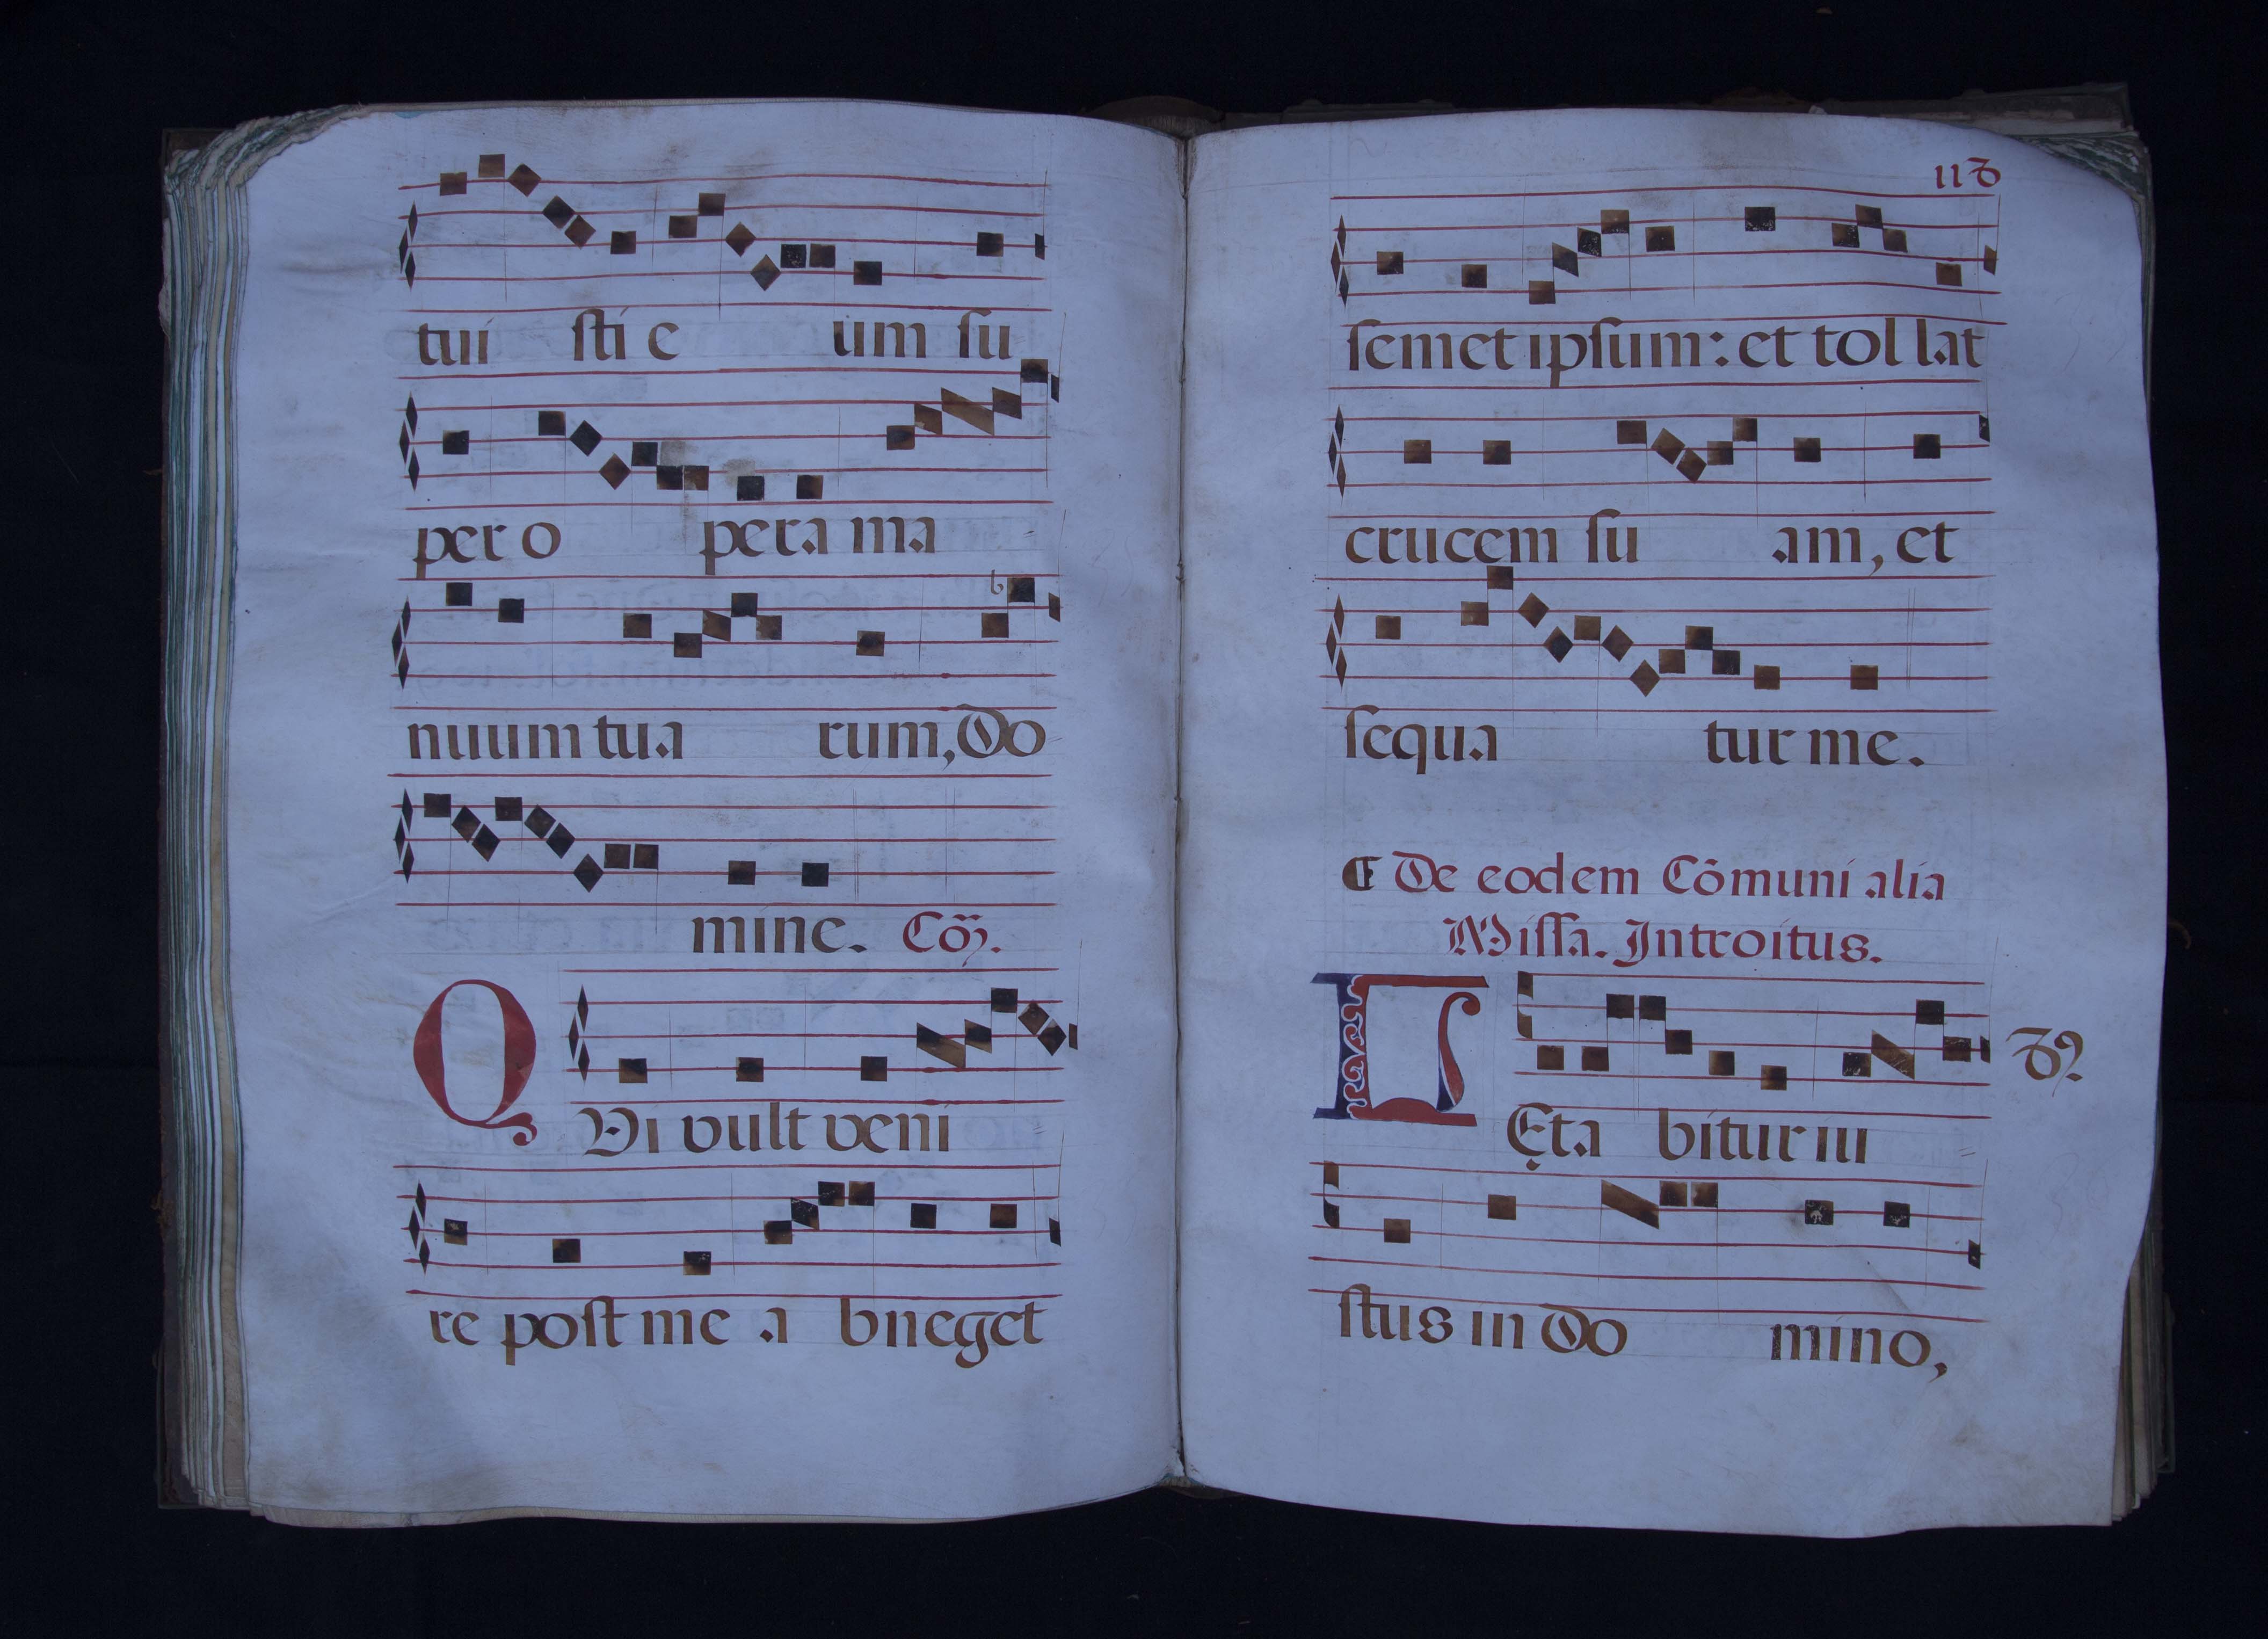 tui sti e um su
per o pera ma
nuum tua rum, Do
mine. Cõ.
QVi vult veni
re post me a bneget
118
semet ipsum: et tol lat
crucem su am, et
sequa tur me.
De eodem Cõmuni alia
Missa. Introitus.
LĘta bitur iu
stus in Do mino,